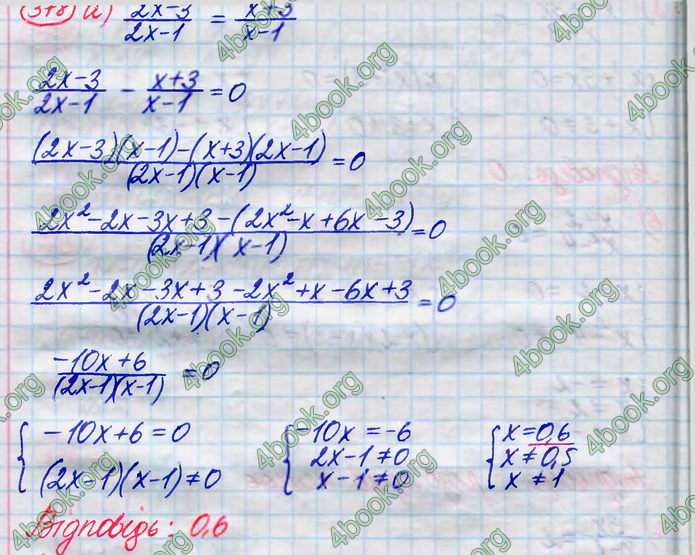 378) а) (2x-3)/(2x-1) = (x+3)/(x-1)
(2x-3)/(2x-1) - (x+3)/(x-1) = 0
((2x-3)(x-1)-(x+3)(2x-1))/((2x-1)(x-1)) = 0
(2x²-2x-3x+3-(2x²-x+6x-3))/((2x-1)(x-1)) = 0
(2x²-2x-3x+3-2x²+x-6x+3)/((2x-1)(x-1)) = 0
(-10x+6)/((2x-1)(x-1)) = 0
{ -10x+6=0 { -10x=-6 { x=0,6
(2x-1)(x-1)≠0 2x-1≠0 x≠0,5
x-1≠0 x≠1
Відповідь: 0,6
4book.org